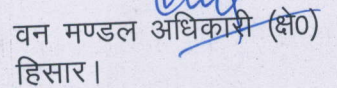 वन मण्डल अधिकारी (क्षे0)
हिसार।